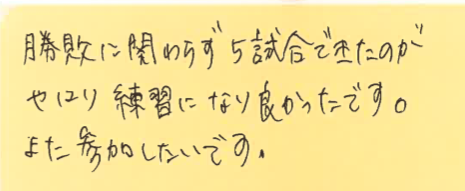 勝敗に関わらず5試合できたのが
やはり練習になり良かったです。
また参加したいです。